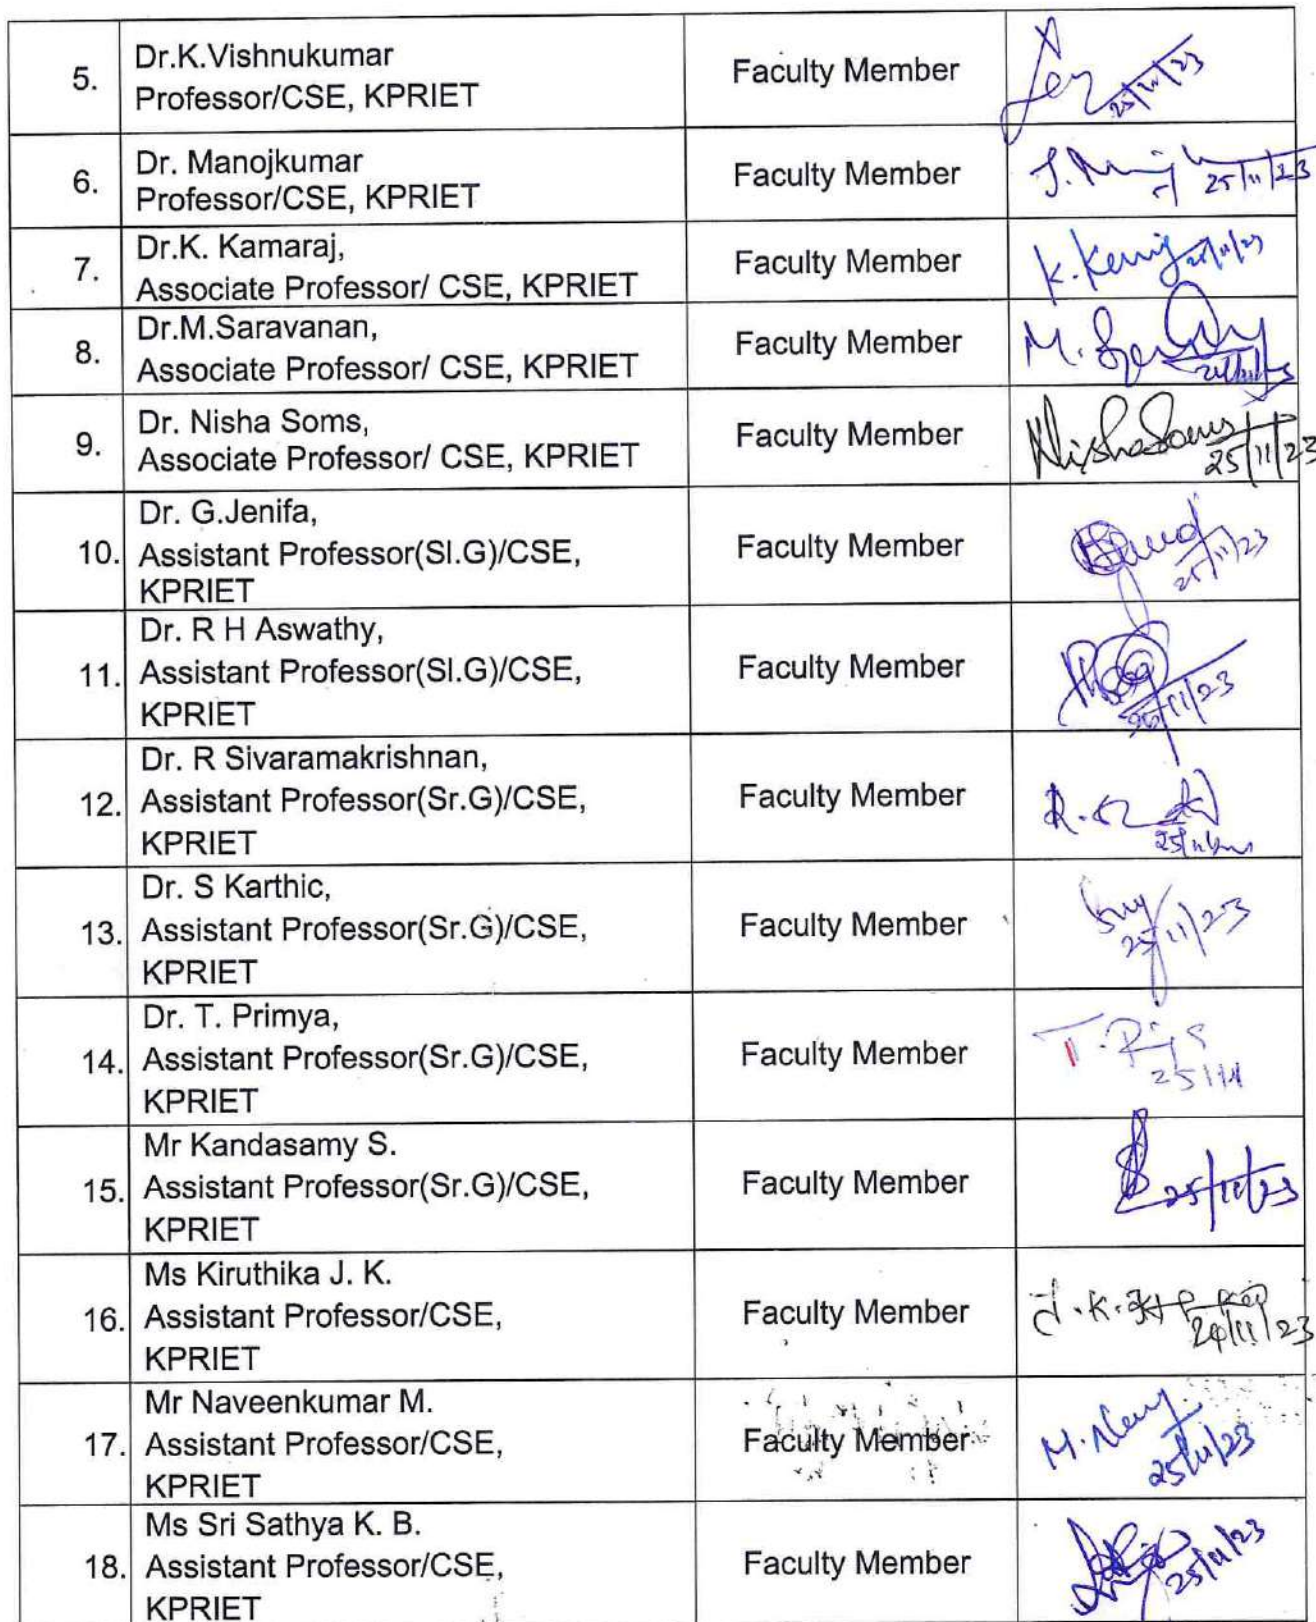 5.
Dr.K.Vishnukumar
Professor/CSE, KPRIET
Faculty Member
25/11/23
6.
Dr. Manojkumar
Professor/CSE, KPRIET
Faculty Member
25/11/23
7.
Dr.K. Kamaraj,
Associate Professor/ CSE, KPRIET
Faculty Member
25/11/23
8.
Dr.M.Saravanan,
Associate Professor/ CSE, KPRIET
Faculty Member
M.
9.
Dr. Nisha Soms,
Associate Professor/ CSE, KPRIET
Faculty Member
Nisha Soms
25/11/23
10.
Dr. G.Jenifa,
Assistant Professor(Sl.G)/CSE,
KPRIET
Faculty Member
25/11/23
11.
Dr. R H Aswathy,
Assistant Professor(Sl.G)/CSE,
KPRIET
Faculty Member
25/11/23
12.
Dr. R Sivaramakrishnan,
Assistant Professor(Sr.G)/CSE,
KPRIET
Faculty Member
13.
Dr. S Karthic,
Assistant Professor(Sr.G)/CSE,
KPRIET
Faculty Member
25/11/23
14.
Dr. T. Primya,
Assistant Professor(Sr.G)/CSE,
KPRIET
Faculty Member
25/11
15.
Mr Kandasamy S.
Assistant Professor(Sr.G)/CSE,
KPRIET
Faculty Member
25/11/23
16.
Ms Kiruthika J. K.
Assistant Professor/CSE,
KPRIET
Faculty Member
J.K.
17.
Mr Naveenkumar M.
Assistant Professor/CSE,
KPRIET
Faculty Member
25/11/23
18.
Ms Sri Sathya K. B.
Assistant Professor/CSE,
KPRIET
Faculty Member
25/11/23